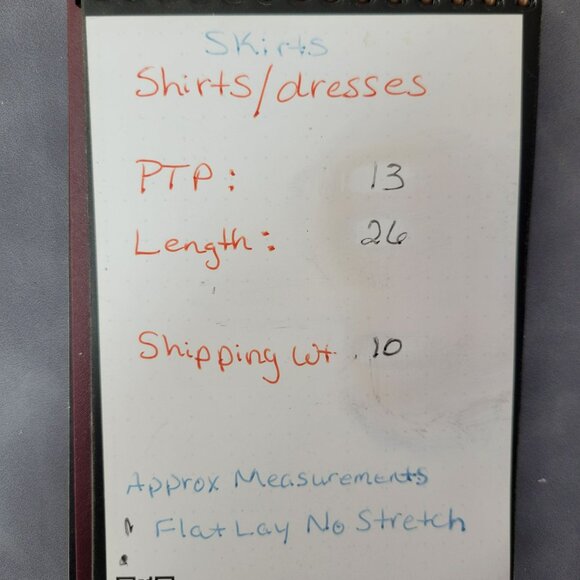 Skirts
Shirts/dresses
PTP: 13
Length: 26
Shipping Wt. 10
Approx Measurements
Flat Lay No Stretch